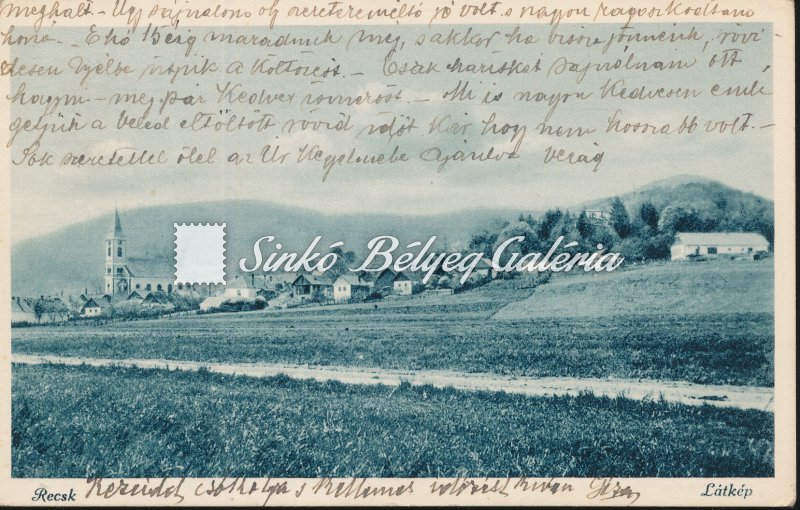 meghalt. - Úgy sajnálom oly szeretetreméltó jó volt s nagyon ragaszkodtam
hozzá. - Ehó 15éig maradunk még, s akkor ha vissza jövünk, rövi
desen Gyöbe a
Csak
hagyni - meg pár Kedves ismerőst. - Mi is nagyon Kedvesen emle
getjük a Veled eltöltött rövid időt Kár hogy nem hosszabb volt. -
Sok szeretettel ölel az Úr Kegyelmébe Ajánlva Virág
Sinkó Bélyeg Galéria
Recsk
Kezeidet csókolja s Kellemes időzést kíván Géza
Látkép